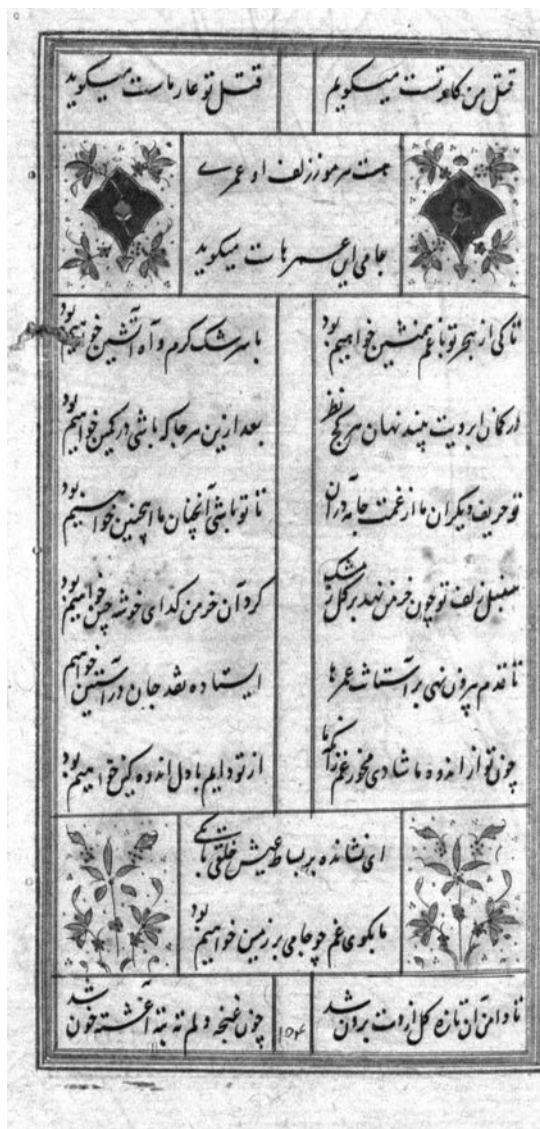 قتل من کام تست میگویم
قتل تو عار ماست میگوید
هست هر موز زلف او عمرے
جامی این عمرهات میگوید
تا کی از هجر تو با غم همنشین خواهیم بود
با سرشک گرم و آه آتشین خواهیم بود
از کمان ابرویت بیند نهان هر کج نظر
بعد ازین هر جا که باشی در کمین خواهیم بود
تو حریف دیگران ما از غمت جامه دران
تا تو باشی آنچنان ما اینچنین خواهیم بود
سنبل زلف تو چون خرمن نهد بر گل ز مشک
گرد آن خرمن گدای خوشه چین خواهیم بود
تا قدم بیرون نهی بر آستانت عمرها
ایستاده نقد جان در آستین خواهیم
چون تو از اندوه ما شادی مخور غم زانکه ما
از تو دایم با دل اندوه گین خواهیم بود
ای نشانده بر بساط عیش خلقی
ما بکوی غم چو جامی بر زمین خواهیم بود
تا دامن آن تازه گل از دست برون شد
چون غنچه دلم ته بته آغشته خون شد